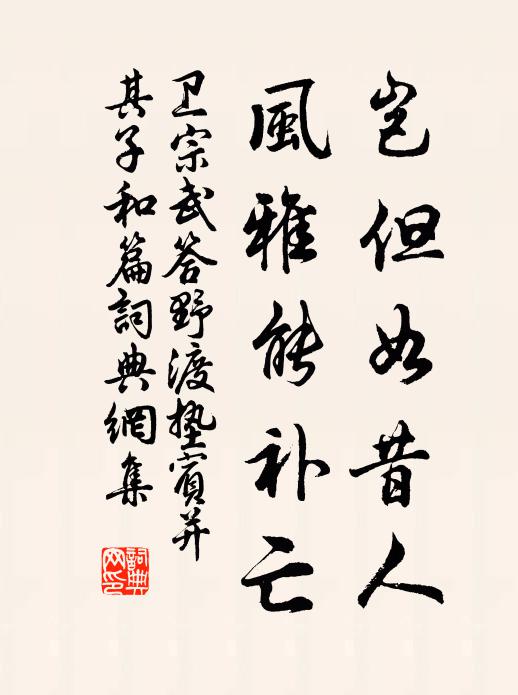 岂但如昔人
風雅能补亡
卫宗武答野渡塾賓并
其子和篇詞典網集
詞典网印